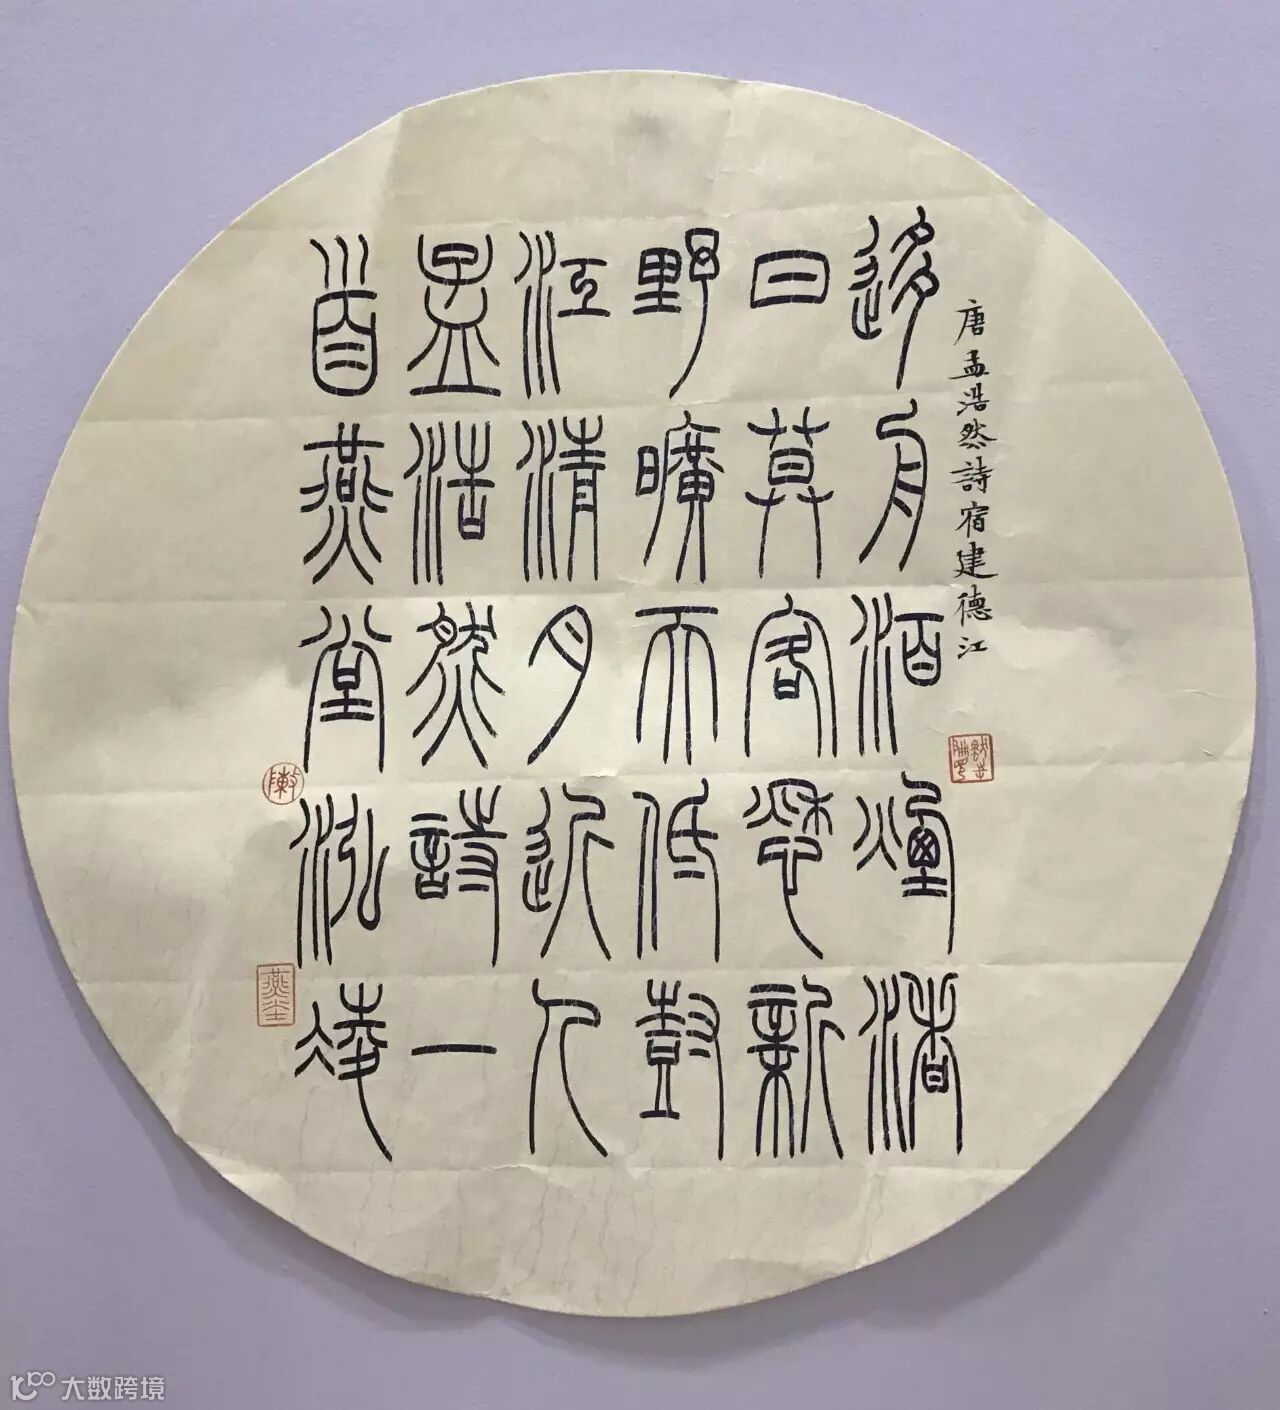 唐孟浩然詩宿建德江
迻舟洦煙渚
日莫客愁新
野曠天低尌
江清月近人
孟浩然詩一
首燕堂泓凌
陳
燕堂
大数跨境